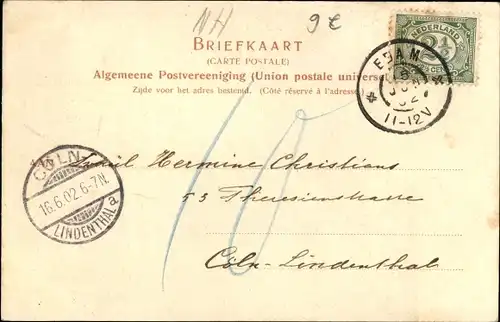 NH
9 €
BRIEFKAART
(CARTE POSTALE)
Algemeene Postvereeniging (Union postale universe
Zijde voor het adres bestemd. (Côté réservé à l'adresse.)
NEDERLAND
2½
CENT
EDAM
15
JUN
02
11-12V
10
CÖLN-
16.6.02.6-7N.
LINDENTHAL a
Hermine Christians
53 Theresienstrasse
Cöln-Lindenthal